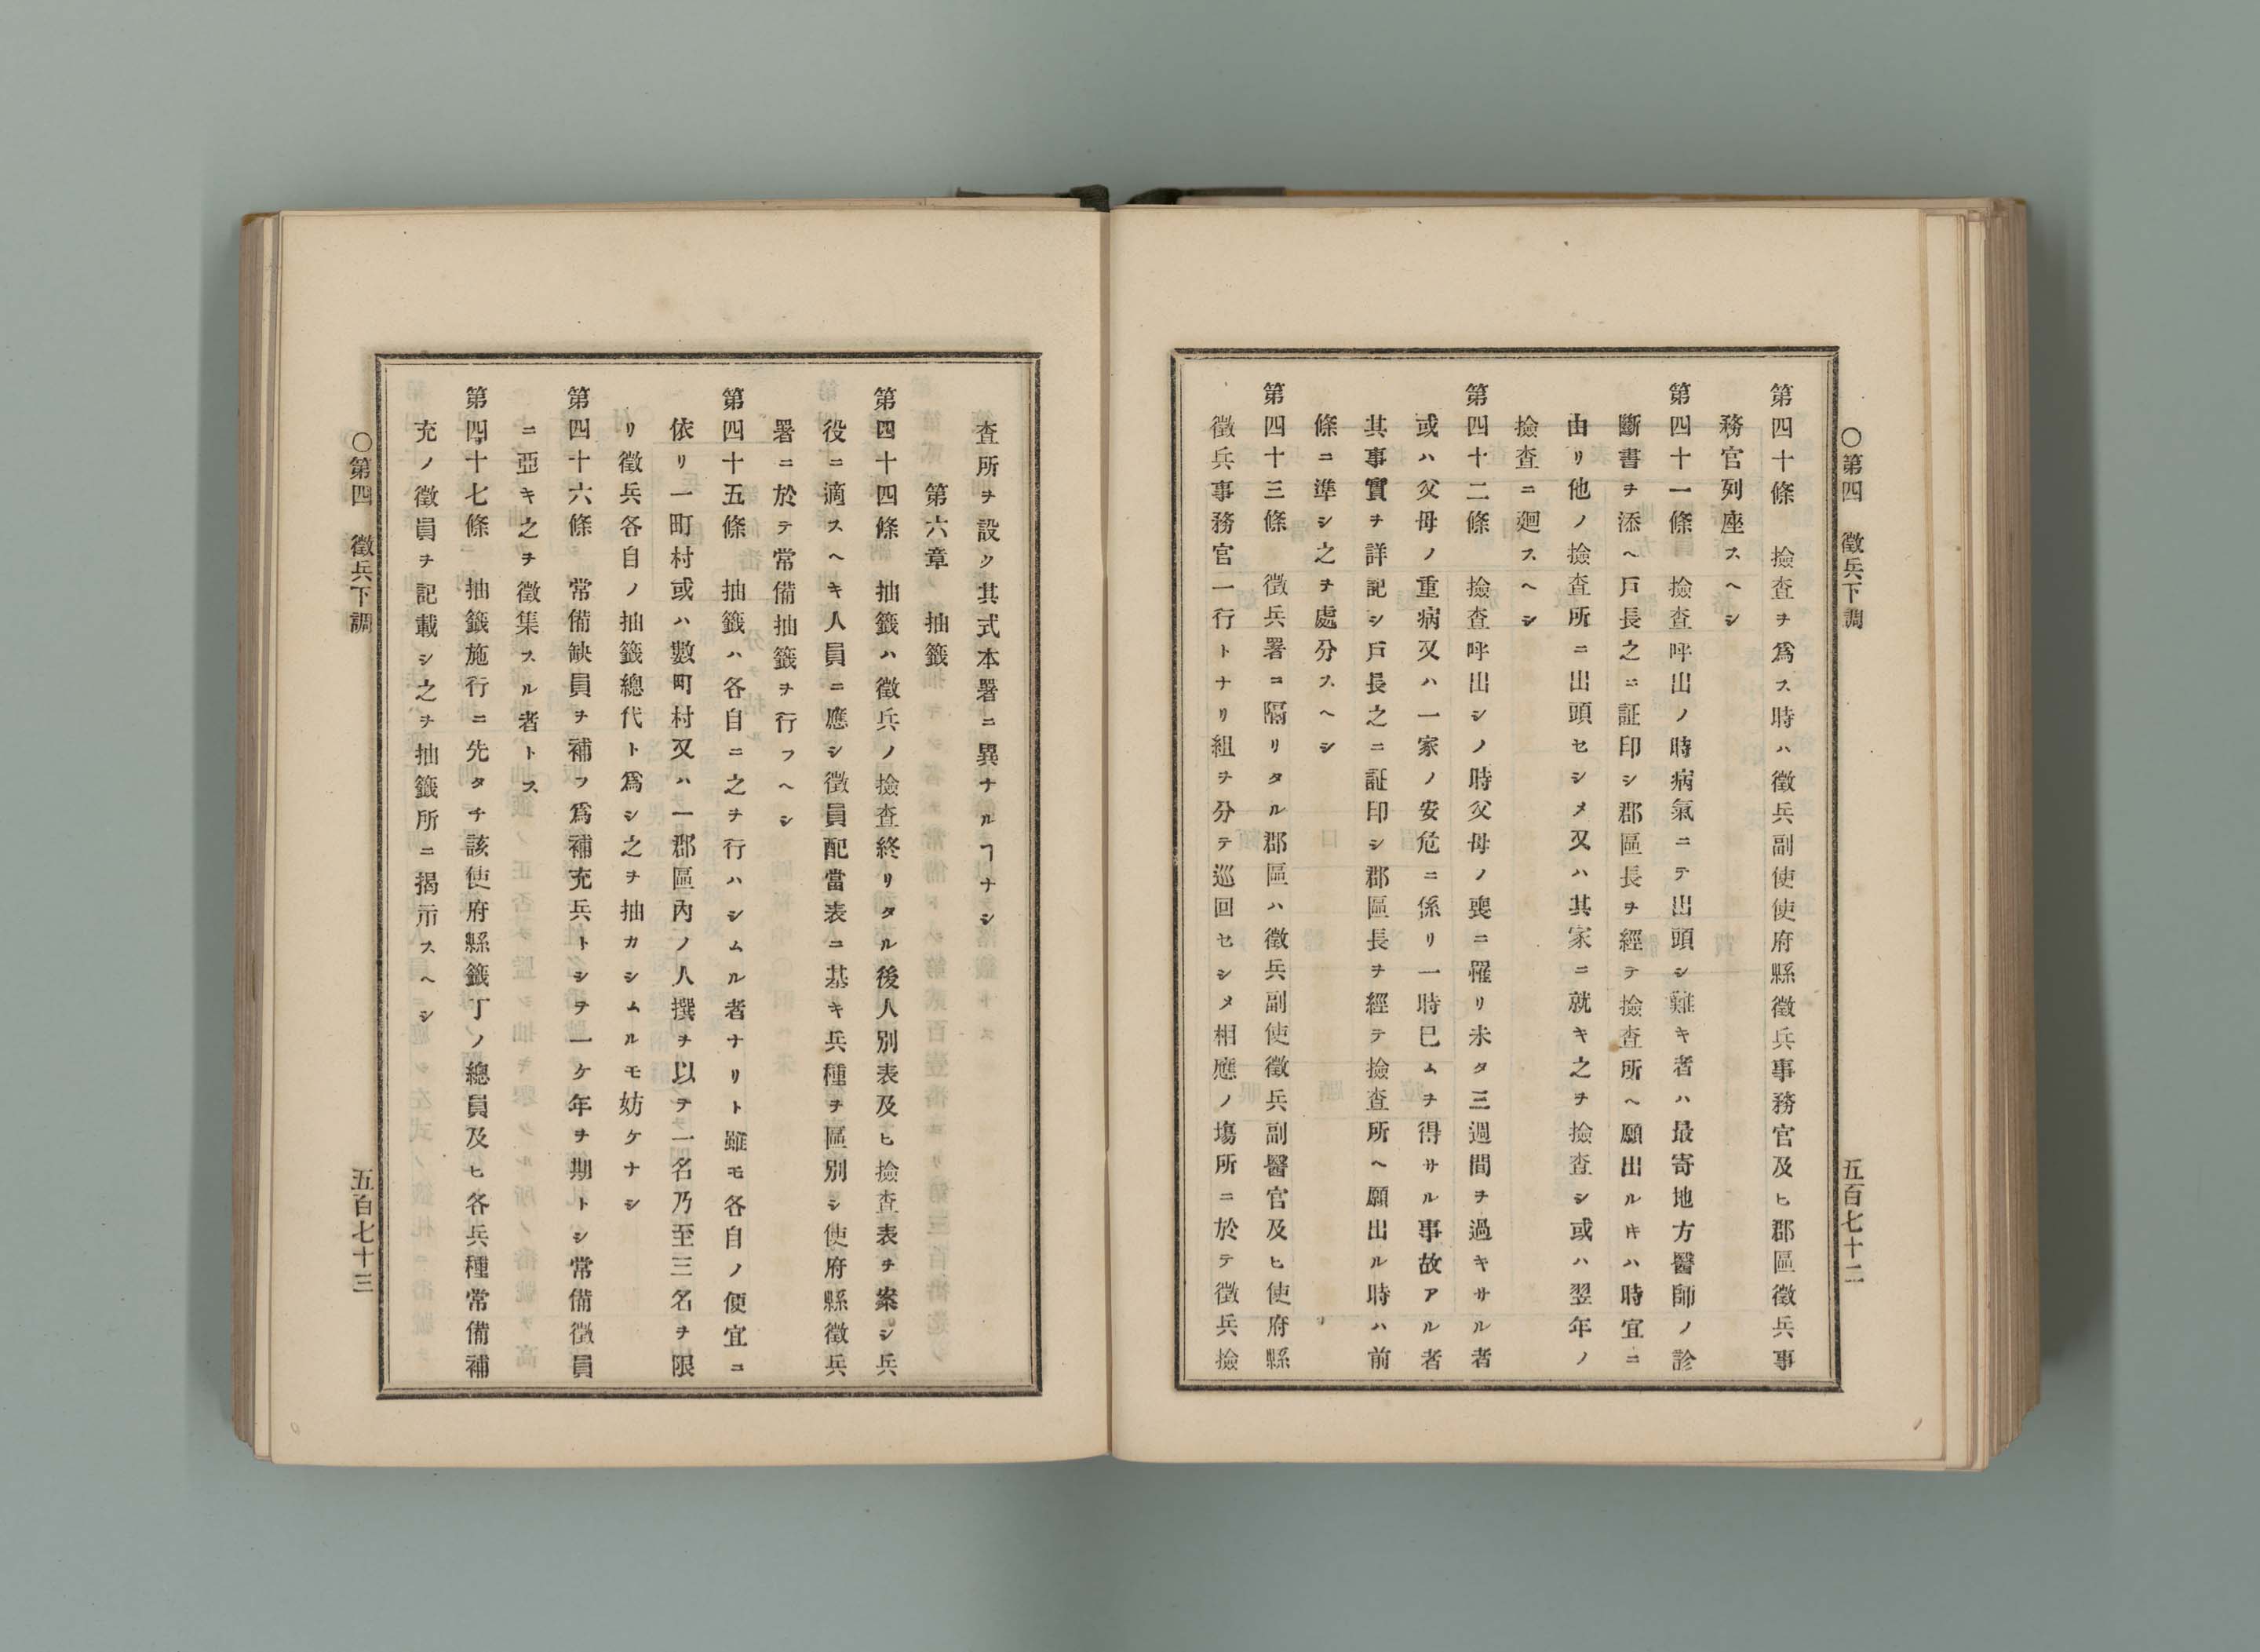 ○第四　徵兵下調　五百七十二
第四十條　撿査ヲ爲ス時ハ徵兵副使使府縣徵兵事務官及ヒ郡區徵兵事
務官列座スヘシ
第四十一條　撿査呼出ノ時病氣ニテ出頭シ難キ者ハ最寄地方醫師ノ診
斷書ヲ添ヘ戸長之ニ証印シ郡區長ヲ經テ撿査所ヘ願出ルキハ時宜ニ
由リ他ノ撿査所ニ出頭セシメ又ハ其家ニ就キ之ヲ撿査シ或ハ翌年ノ
撿査ニ廻スヘシ
第四十二條　撿査呼出シノ時父母ノ喪ニ罹リ未タ三週間ヲ過キサル者
或ハ父母ノ重病又ハ一家ノ安危ニ係リ一時已ムヲ得サル事故アル者
其事實ヲ詳記シ戸長之ニ証印シ郡區長ヲ經テ撿査所ヘ願出ル時ハ前
條ニ準シ之ヲ處分スヘシ
第四十三條　徵兵署ヨ隔リタル郡區ハ徵兵副使徵兵副醫官及ヒ使府縣
徵兵事務官一行トナリ組ヲ分テ巡回セシメ相應ノ塲所ニ於テ徵兵撿
査所ヲ設ク其式本署ニ異ナルヿナシ
第六章　抽籤
第四十四條　抽籤ハ徵兵ノ撿査終リタル後人別表及ヒ撿査表ヲ案シ兵
役ニ適スヘキ人員ニ應シ徵員配當表ニ基キ兵種ヲ區別シ使府縣徵兵
署ニ於テ常備抽籤ヲ行フヘシ
第四十五條　抽籤ハ各自ニ之ヲ行ハシムル者ナリト雖モ各自ノ便宜ニ
依リ一町村或ハ數町村又ハ一郡區內ノ人撰ヲ以テ一名乃至三名ヲ限
リ徵兵各自ノ抽籤總代ト爲シ之ヲ抽カシムルモ妨ケナシ
第四十六條　常備缺員ヲ補フ爲補充兵トシテ一ケ年ヲ期トシ常備徵員
ニ亞キ之ヲ徵集スル者トス
第四十七條　抽籤施行ニ先タチ該使府縣籤丁ノ總員及ヒ各兵種常備補
充ノ徵員ヲ記載シ之ヲ抽籤所ニ揭示スヘシ
○第四　徵兵下調　五百七十三